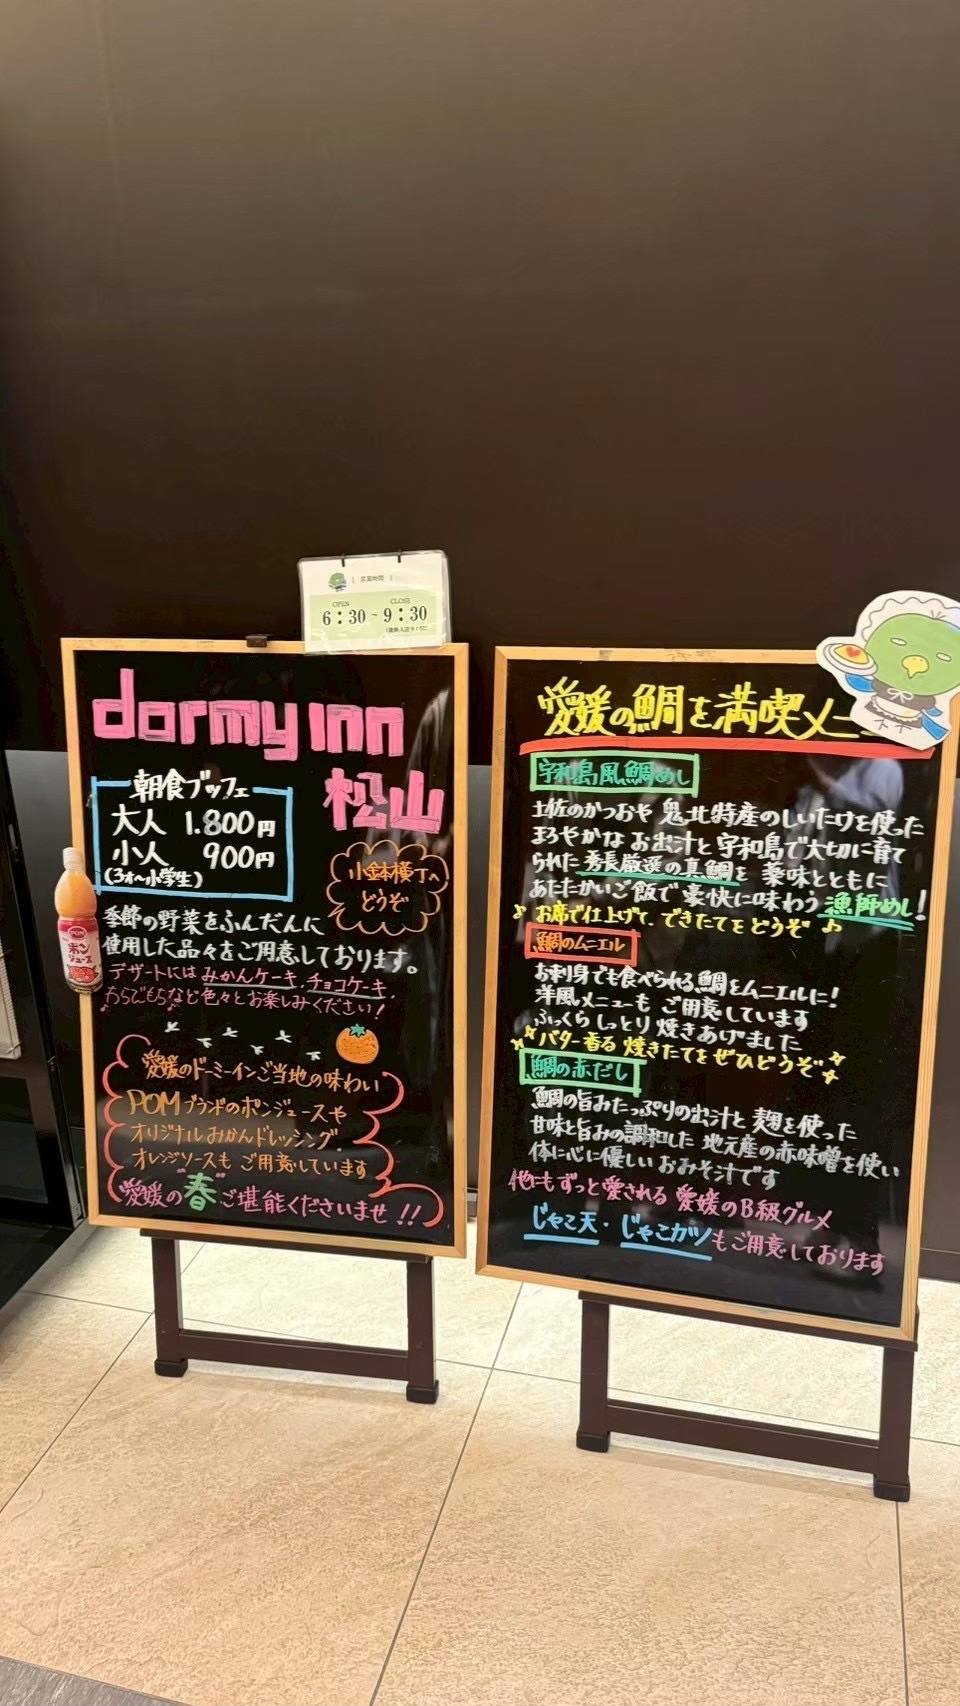 営業時間
OPEN CLOSE
6:30~9:30
dormy inn
松山
朝食ブッフェ
大人 1.800円
小人 900円
(3才~小学生)
小金本横丁へ
どうぞ
POM
ポン
ジュース
季節の野菜をふんだんに
使用した品々をご用意しております。
デザートにはみかんケーキ、チョコケーキ、
わらびもちなど色々とお楽しみください!
愛媛のドーミーインご当地の味わい
POMブランドのポンジュースや
オリジナルみかんドレッシング、
オレンジソースもご用意しています
愛媛の"春"ご堪能くださいませ!!
愛媛の鯛を満喫メニ
宇和島風鯛めし
土佐のかつおや鬼北特産のしいたけを使った
まろやかなお出汁と宇和島で大切に育て
られた秀長厳選の真鯛を薬味とともに
あたたかいご飯で豪快に味わう漁師めし!
♪お席で仕上げて、できたてをどうぞ♪
鯛のムニエル
お刺身でも食べられる鯛をムニエルに!
洋風メニューもご用意しています
ふっくらしっとり焼きあげました
バター香る焼きたてをぜひどうぞ
鯛の赤だし
鯛の旨みたっぷりの出汁と麹を使った
甘味と旨みの調和した地元産の赤味噌を使い
体に心に優しいおみそ汁です
他にもずっと愛される愛媛のB級グルメ
じゃこ天・じゃこカツもご用意しております